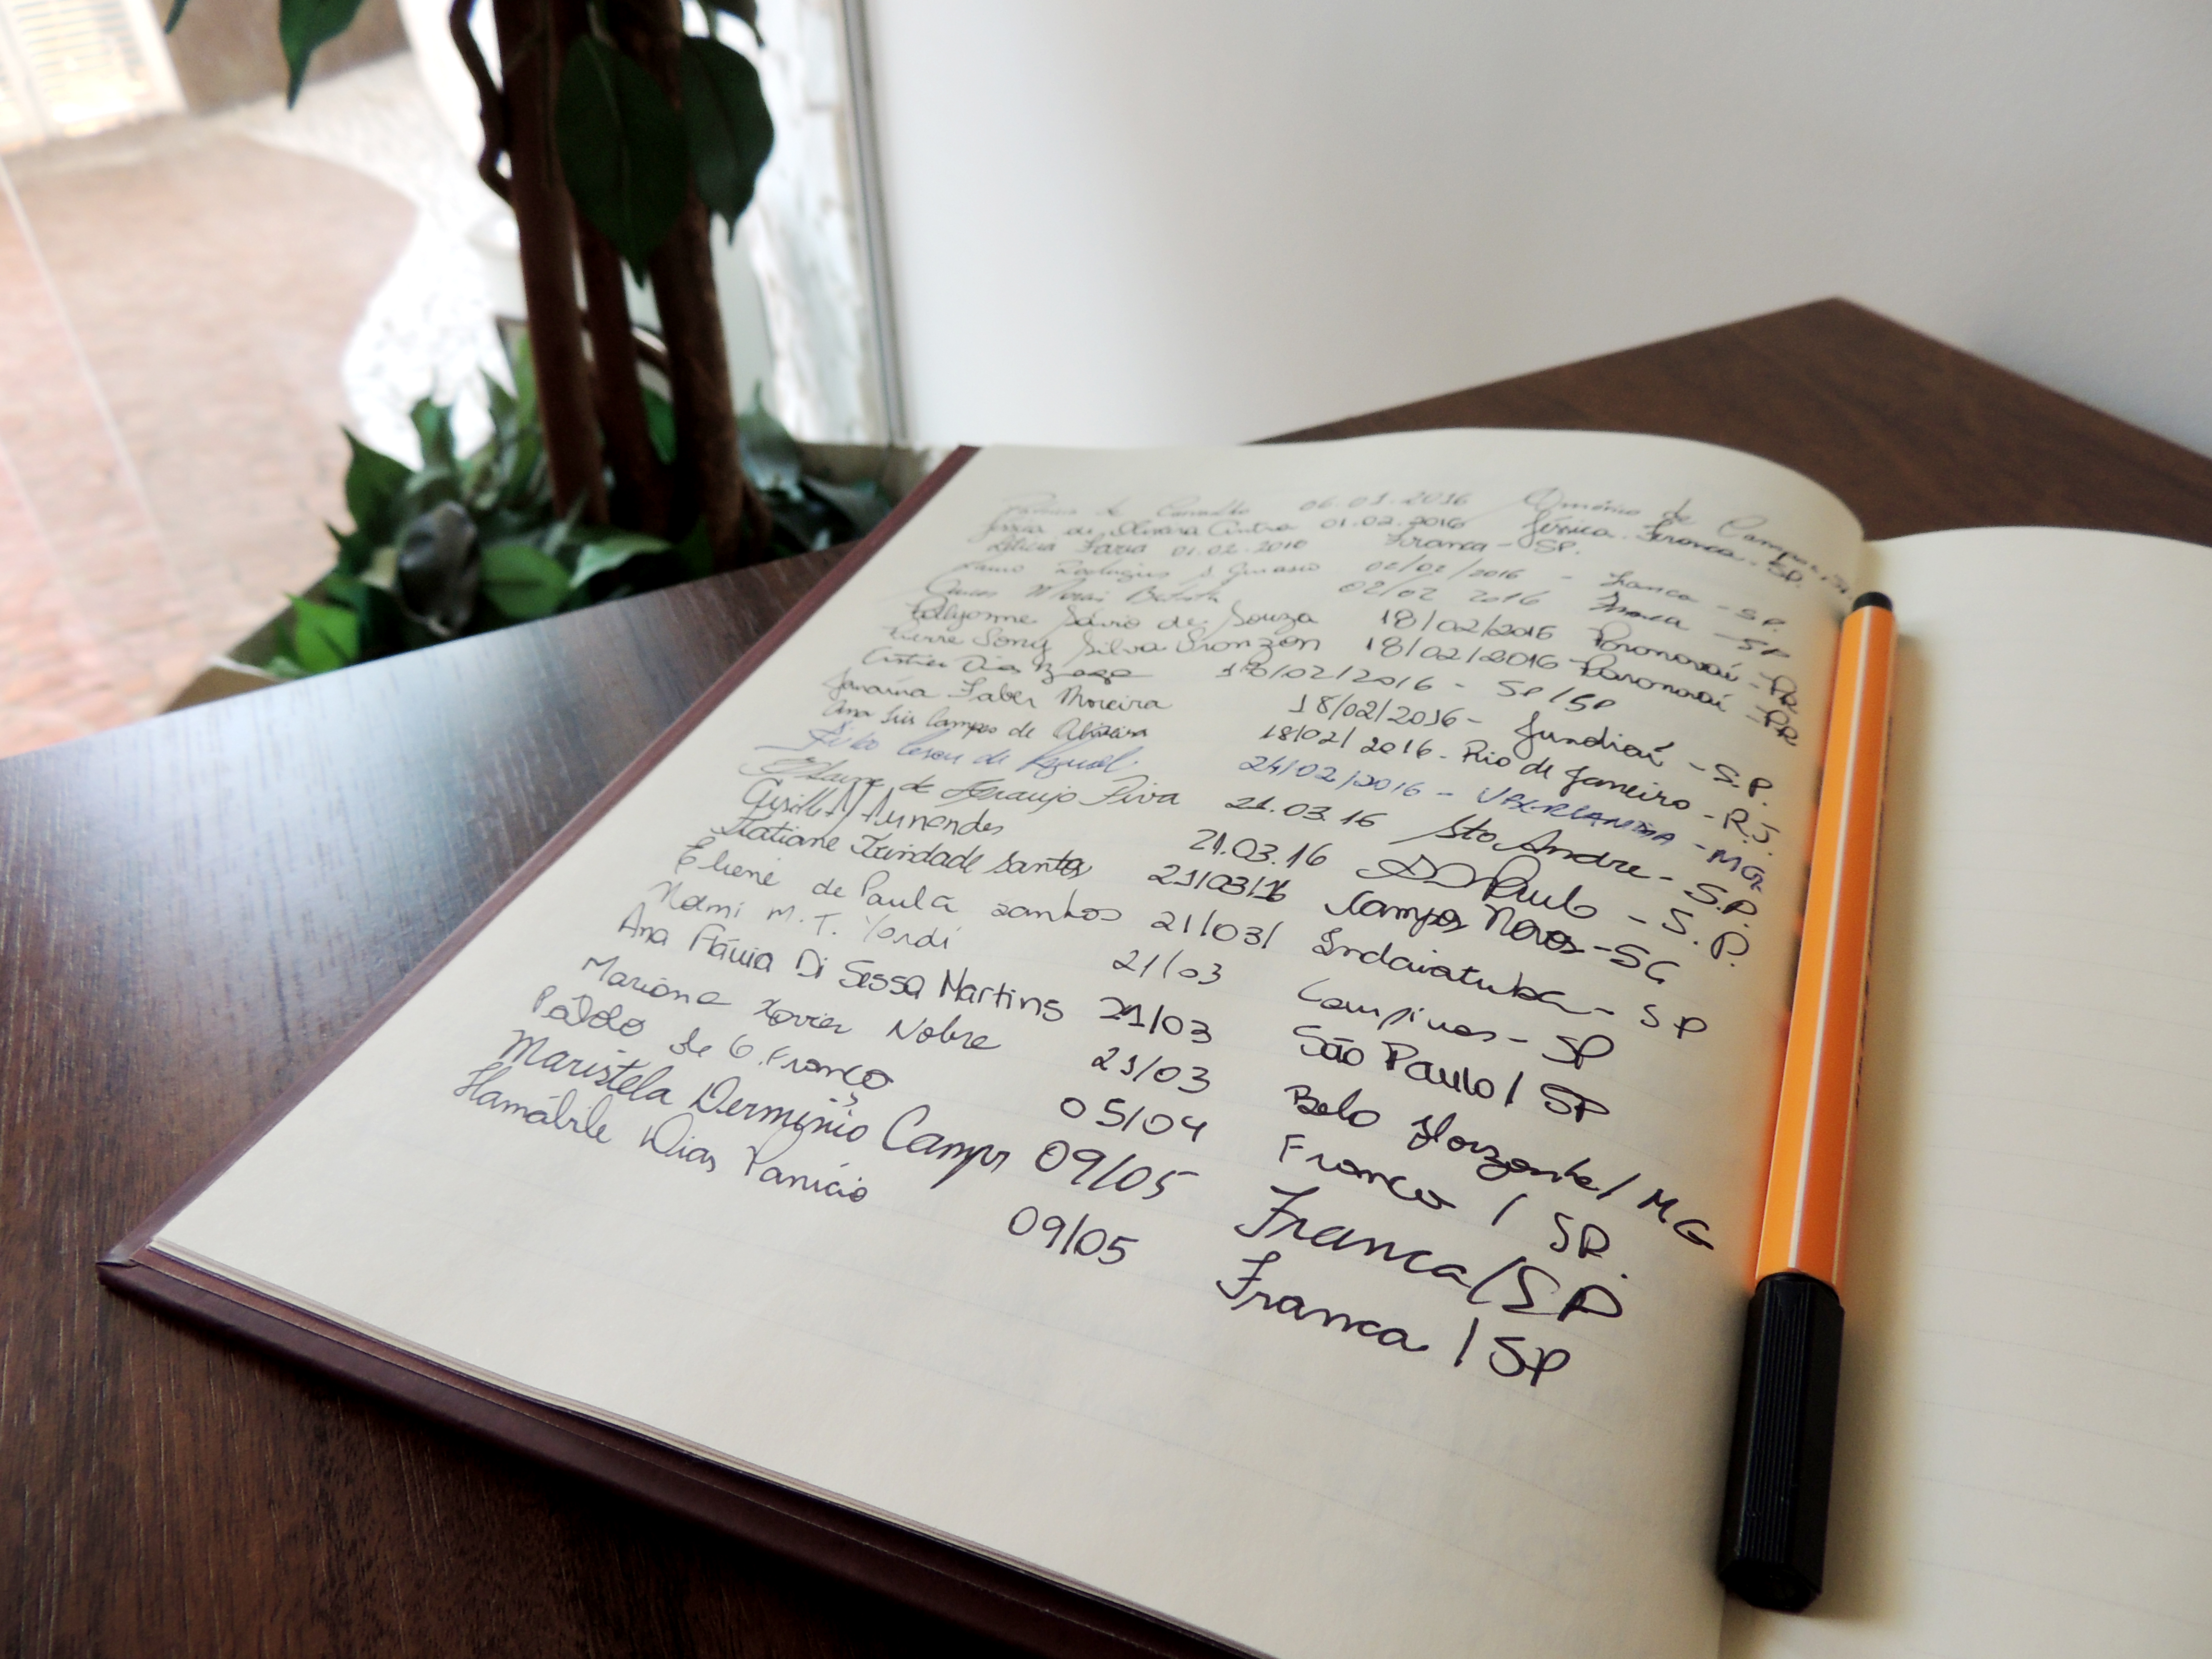 de Carvalho 06.01.2016 Américo de Campos
de Oliveira Cintra 01.02.2016 Jéssica. Franca - SP.
Letícia Faria 01.02.2016 Franca - SP.
Rodrigues 02/02/2016 - Franca - SP.
Morais Batista 02/02 2016 Franca - SP
Sávio de Souza 18/02/2016 Paranavaí - PR
Silva 18/02/2016 Paranavaí - PR
Dias 18/02/2016 - SP/SP
Janaína Faber Moreira 18/02/2016 - Jundiaí - S.P.
Ana Campos de Oliveira 18/02/2016 - Rio de Janeiro - R.J.
de 24/02/2016 - UBERLANDIA - MG
de Araujo Piva 21.03.16 Sto Andre - S.P.
21.03.16 São Paulo - S.P.
Tatiane Trindade Santos 21/03/16 Campos Novos - SC
Eliene de Paula Santos 21/03/ Indaiatuba - SP
M. T. 21/03 Campinas - SP
Ana Flávia Di Sessa Martins 21/03 São Paulo / SP
Mariana Xavier Nobre 21/03 Belo Horizonte / MG
de G. França 05/04 Franca / SP.
Maristela Derminio Campos 09/05 Franca / SP
Hamábile Dias Panício 09/05 Franca / SP